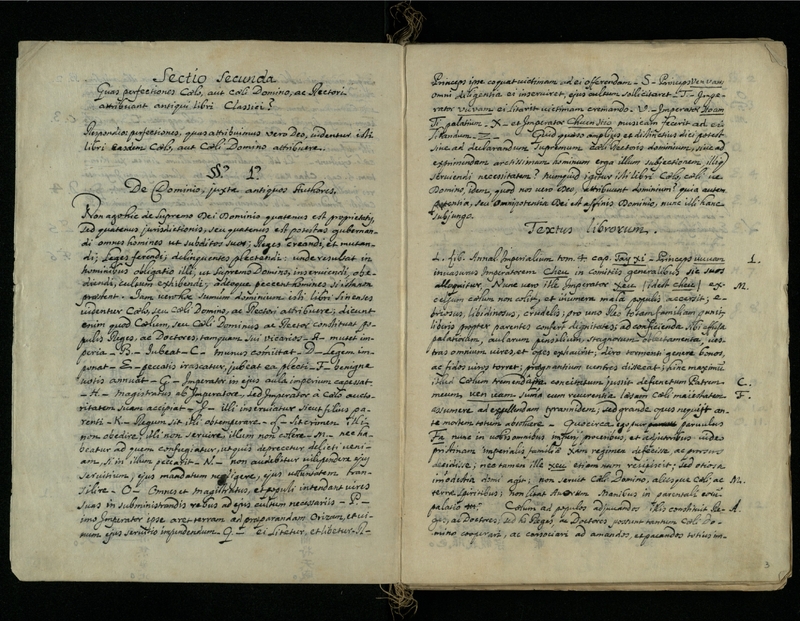 Sectio Secunda
Quas perfectiones Cœlo, aut Cœli Domino, ac Rectori
attribuant antiqui libri Classici?
Respondeo perfectiones, quas attribuimus vero Deo, videntur isti
libri easdem Cœlo, aut Cœli Domino attribuere.
§§? 1?
De Dominio, juxta antiquos Authores.
Non ago hic de Supremo Dei Dominio quatenus est proprietatis,
sed quatenus jurisdictionis, seu quatenus est potestas gubernan-
di omnes homines ut subditos suos; Reges creandi, et mutan-
di; Leges ferendi; delinquentes plectendi: unde resultat in
hominibus obligatio illi, ut Supremo Domino, inserviendi, obe-
diendi, cultum exhibendi; adeoque peccent homines si
Jam vero hoc Summum dominium isti libri Sinenses
videntur Cœlo, seu Cœli Domino, ac Rectori attribuere; dicunt
enim quod Cœlum, seu Cœli Dominus ac Rector constituat po-
pulis Reges, ac Doctores, tanquam sui vicarios - A - mutet im-
peria - B - Jubeat - C - munus comittat - D - Legem im-
ponat - E - peccatis irascatur, jubeat ea plecti - F - benigne
votis annuat - G - Imperator in ejus aula imperium capessat
- H - magistratus ab Imperatore, sed Imperator à Cœlo aucto-
ritatem suam accipiat - J - illi inserviatur sicut filius pa-
renti - K - Regum sit illi obtemperare - L - Sit crimen illi
non obedire, illi non servire, illum non colere - M - nec ha-
beatur ad quem confugiatur, ut quis deprecetur delicti veni-
am, si in illum peccarit - N - non audebitur vilipendere ejus
servitium, ejus mandatum negligere, ejus voluntatem tran-
silire - O - Omnes et Magistratus, et populi intendant vires
suas in subministrandis rebus ad ejus cultum necessariis - P -
imo Imperator ipse aret terram ad præparandam Orizam, et vi-
num ejus servitio impendendum - Q - ei Litetur, et libetur - R -
Princeps ipse coquat victimam, ad ei offerendam - S - Princeps Ven vam
omni diligentia ei inserviret, ejus cultum sollicitaret - T - Impe-
rator Vu vam ei litarit victimam cremando - V - Imperator Hoam
Ti palatium - X - et Imperator Chuen Hio musicam fecerit ad ei
litandum - Z - Quid quæso amplius et distinctius dici potest
sive ad declarandum Supremum Cœli Rectoris dominium, sive ad
exprimendam arctissimam hominum erga illum subjectionem, illiq
serviendi necessitatem? Numquid igitur isti libri Cœlo, Cœli ve
Domino idem, quod nos vero Deo, attribuunt dominium? quia autem
potentia, seu Omnipotentia Dei est affinis Dominio, nunc illi hanc
subjungo.
Textus librorum.
L. fib. Annal. Imperialium tom. 4. cap. Tay xi - Princeps vu vam 1.
invasurus Imperatorem Cheu in Comitiis generalibus sic suos
alloquitur. Nunc vero ille Imperator Xeu (idest cheu) ex- M.
celsum cœlum non colit, et innumera mala populis accersit; e-
briosus, libidinosus, crudelis; pro uno Reo totam familiam punit,
libris propter parentes confert dignitates; ad conficienda sibi
palatiorum, aularum pensilium, stagnorum oblectamenta, ves-
tras omnium vires, et opes exhaurit; diro tormenti genere bonos,
ac fidos viros torret; prægnantium ventres dissecat: sane maximum
illud Cœlum tremenda ira concitatum jussit defunctum Patrem C.
meum, ven vam, sua cum reverentia læsam Cœli majestatem F.
assumere ad expellendam tyrannidem; sed grande opus nequiit an-
te mortem totum absolvere. Quocirca ego parvulus
Fa nunc in vobis omnibus meis, proceribus, et adjutoribus video
pristinam imperialis familiæ Xam regimen defecisse, ac prorsus
decidisse; nec tamen ille xeu etiam num resipiscit, sed otiosa
immodestia domi agit; non servit Cœli Domino, aliisque Cœli, ac M.
terræ Spiritibus; non litat Avorum Manibus in parentali eorum
palatio. Cœlum ad populos adjuvandos illis constituit Re- A.
ges, ac Doctores; sed hi Reges, ac Doctores, possunt tantum Cœli Do-
mino cooperari, ac consociari ad amandos, et pacandos totius im-
3